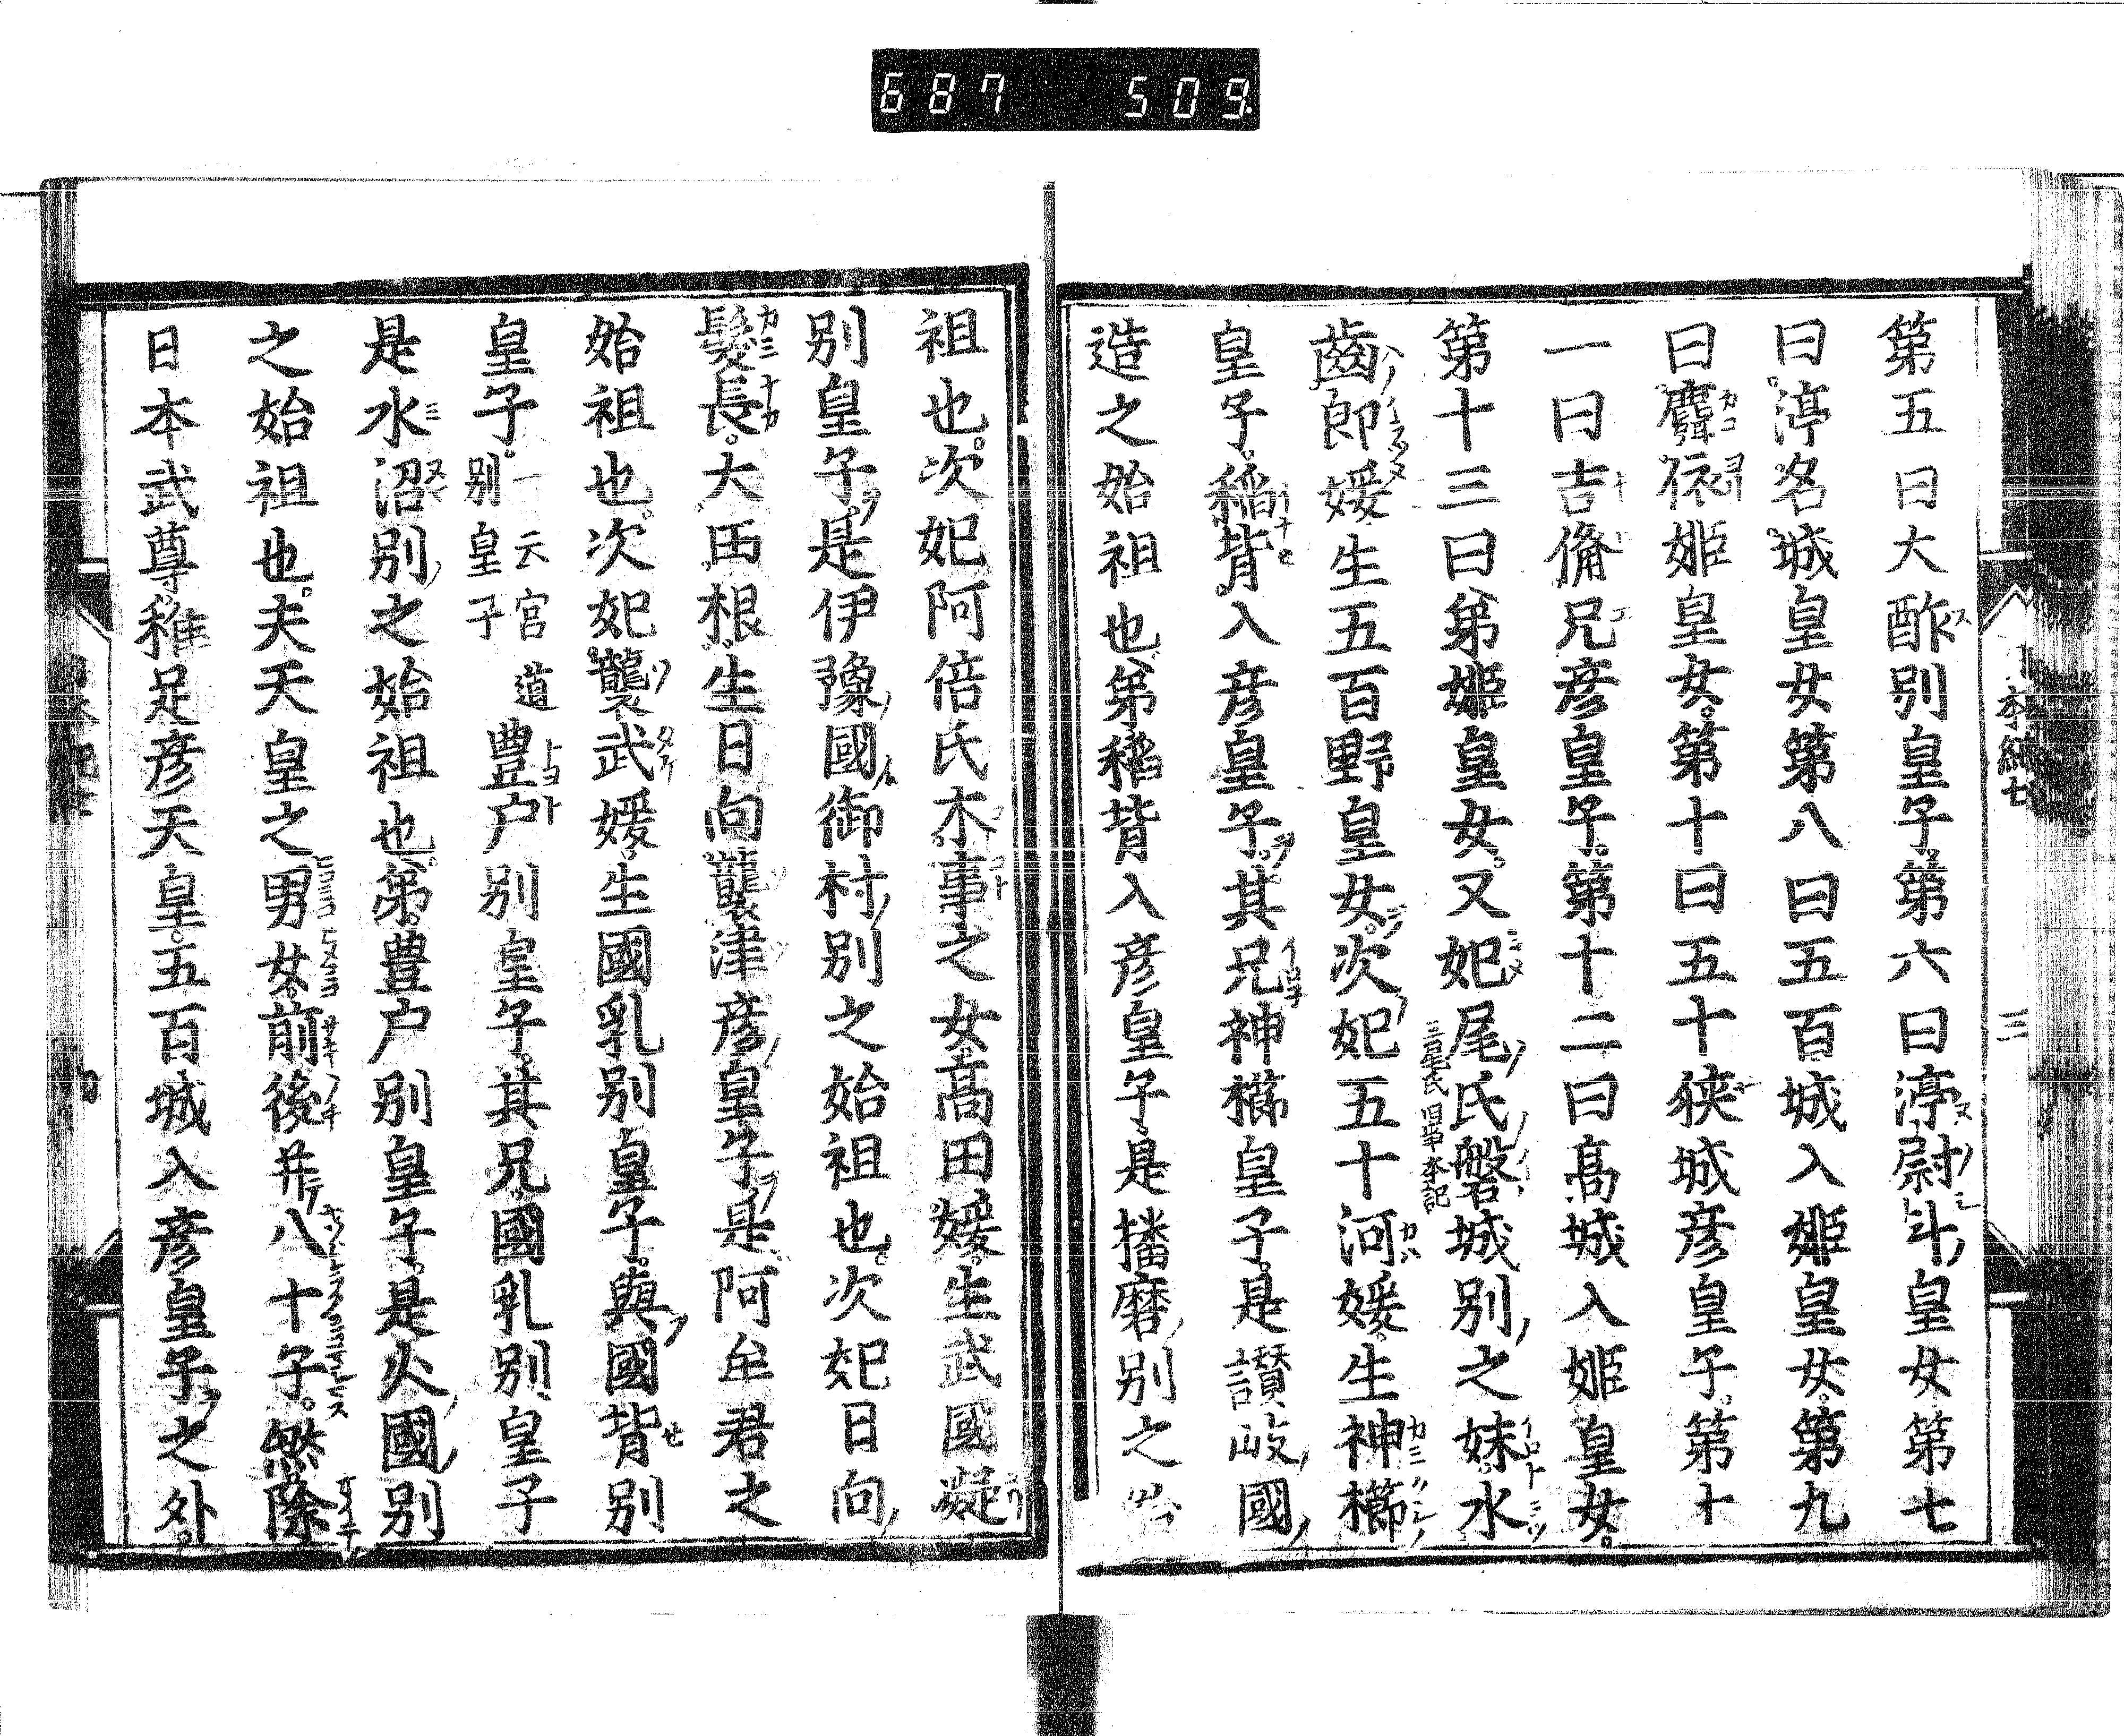 687 509
第五曰大酢別皇子第六曰渟尉斗皇女第七
曰渟名城皇女第八曰五百城入姬皇女第九
曰麛依姬皇女第十曰五十狹城彥皇子第十
一曰吉備兄彥皇子第十二曰高城入姬皇女
第十三曰弟姬皇女又妃尾氏磐城別之妹水
三尾氏旧事本記
齒郎媛生五百野皇女次妃五十河媛生神櫛
皇子稻背入彥皇子其兄神櫛皇子是讃岐國
造之始祖也弟稻背入彥皇子是播磨別之
祖也次妃阿倍氏木事之女高田媛生武國凝
別皇子是伊豫國御村別之始祖也次妃日向
髮長大田根生日向襲津彥皇子是阿牟君之
始祖也次妃襲武媛生國乳別皇子與國背別
皇子一云宮道別皇子豊戶別皇子其兄國乳別皇子
是水沼別之始祖也弟豊戶別皇子是火國別
之始祖也夫天皇之男女前後并八十子然除
日本武尊稚足彥天皇五百城入彥皇子之外
本紀七
三